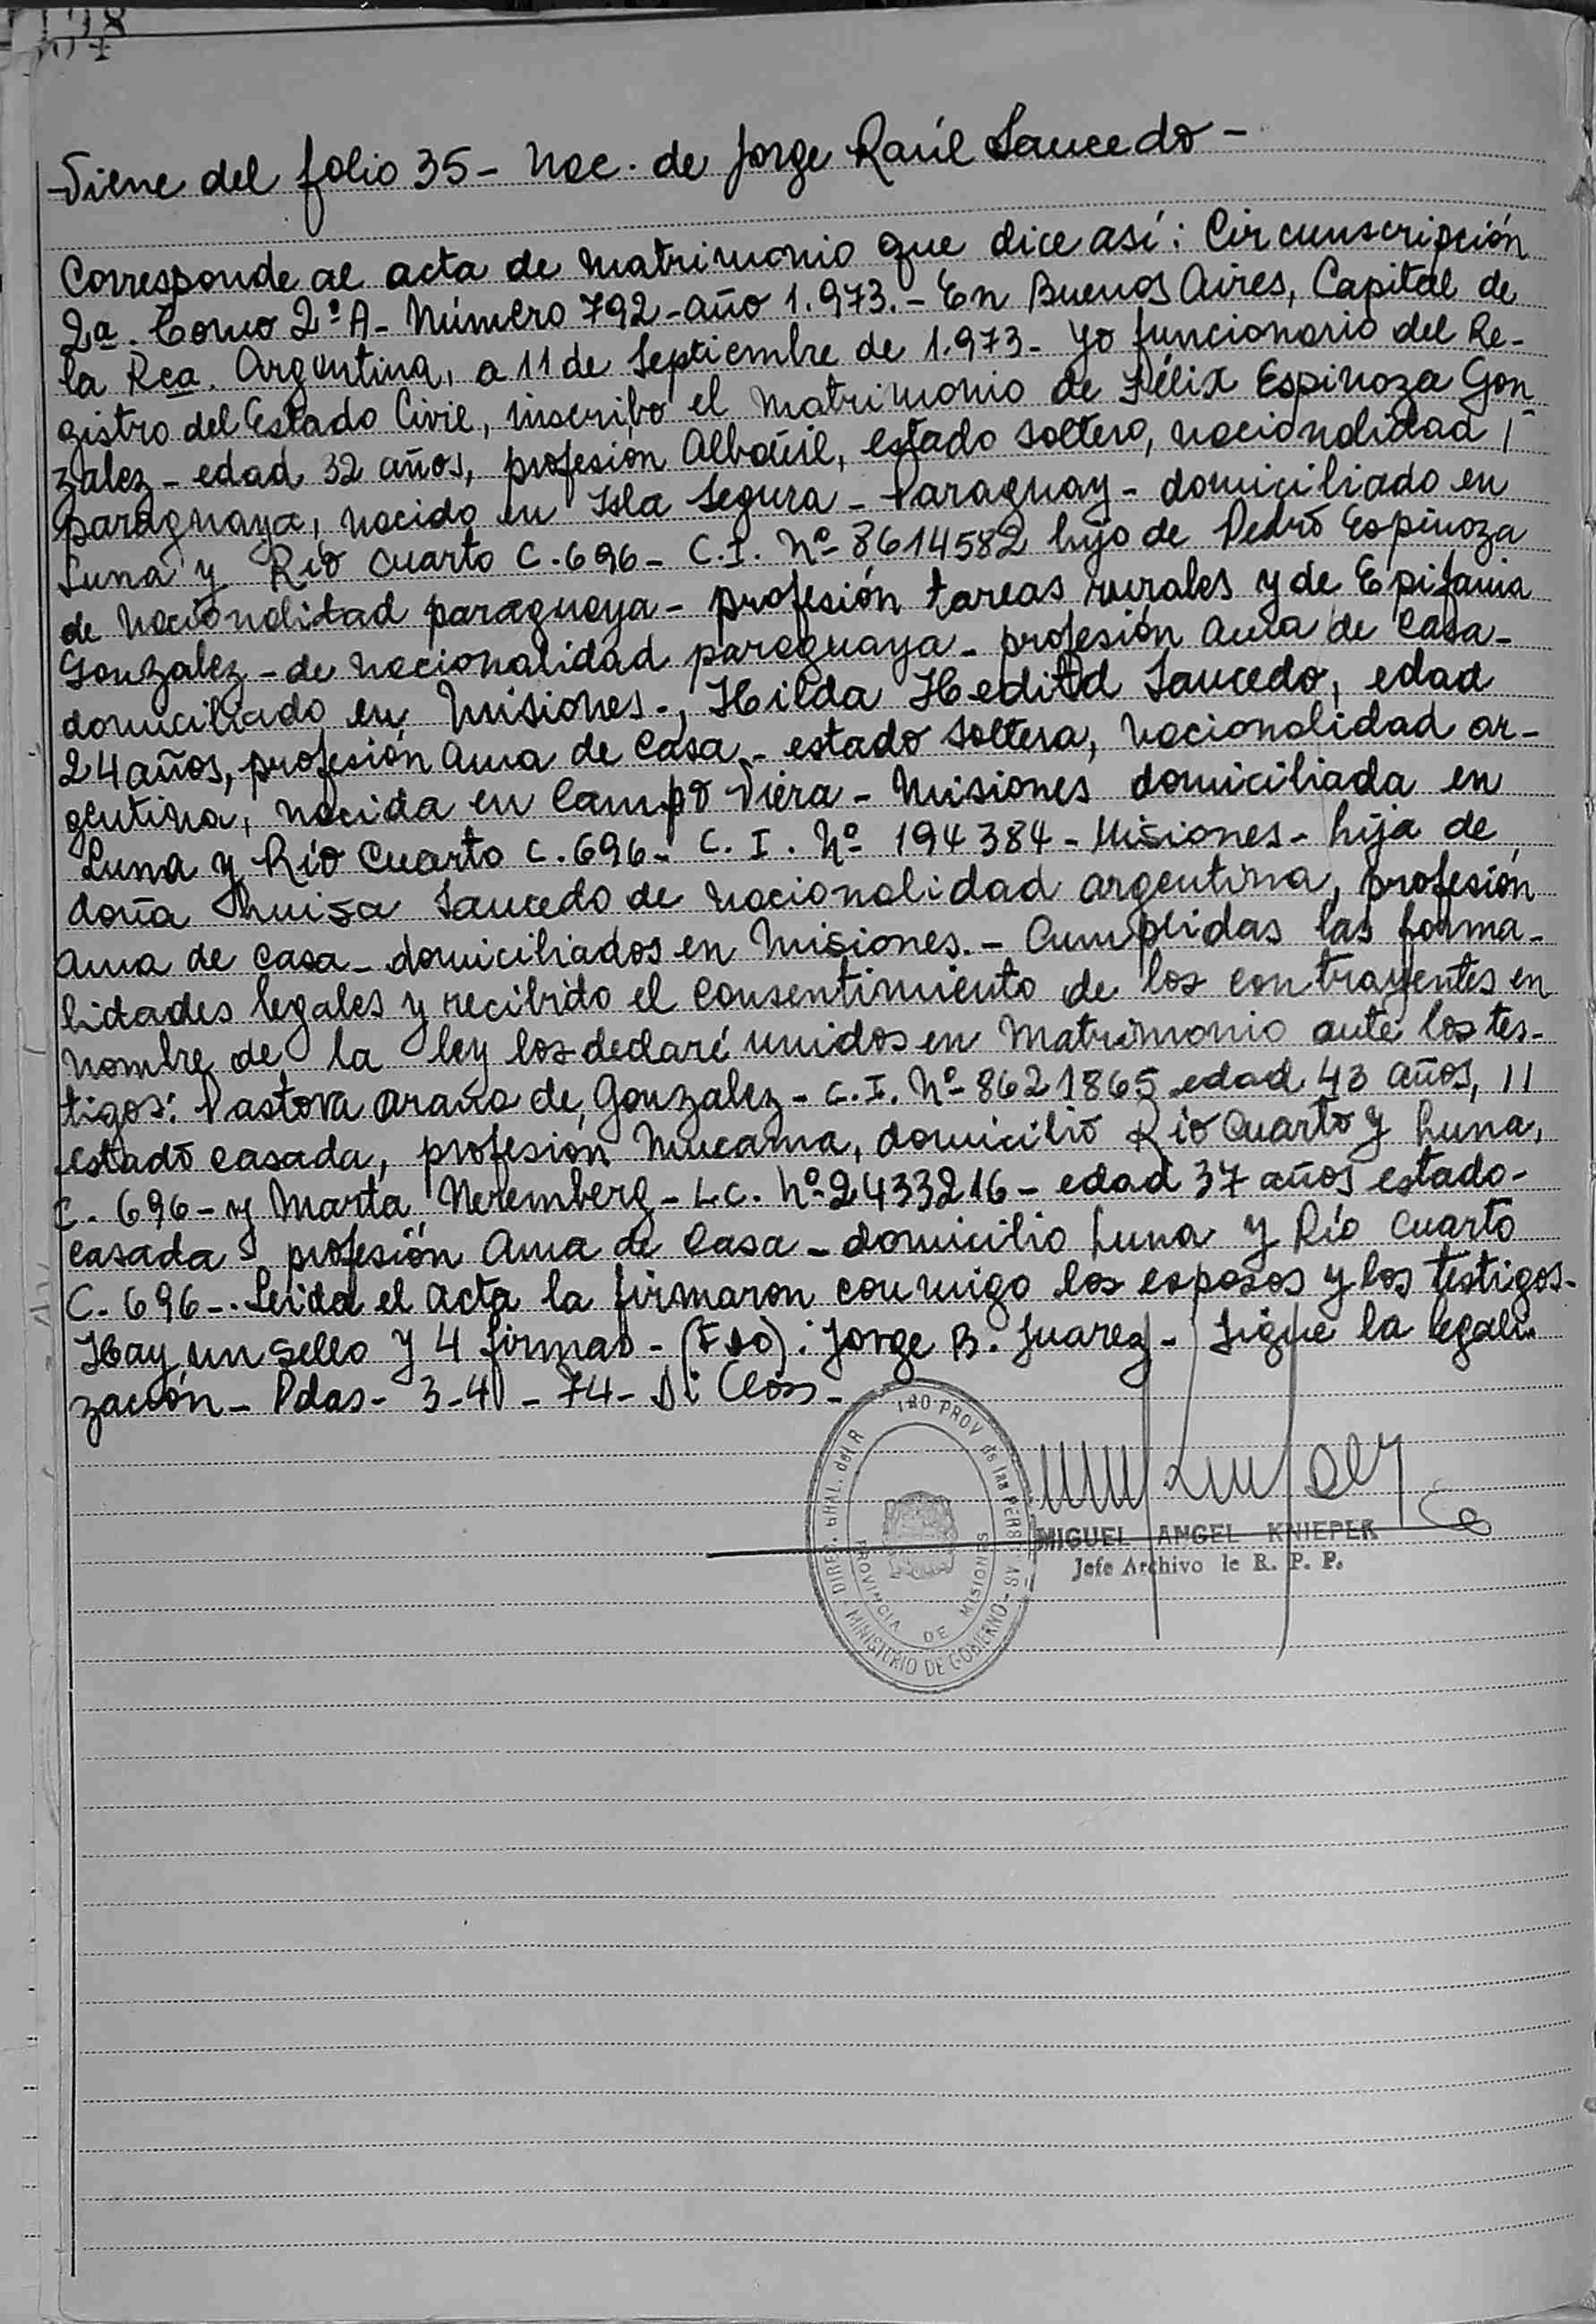 Viene del folio 35- Nac. de Jorge Raúl Saucedo-
Corresponde al acta de matrimonio que dice así: Circunscripción
2a. Tomo 2º A- Número 792-año 1.973.- En Buenos Aires, Capital de
la Rca. Argentina, a 11 de Septiembre de 1.973- Yo funcionario del Re-
gistro del Estado Civil, inscribo el matrimonio de Félix Espinoza Gon
zalez- edad 32 años, profesión Albañil, estado soltero, nacionalidad
paraguaya, nacido en Isla Segura- Paraguay- domiciliado en
Luna y Río Cuarto C.696- C.I. Nº 8614582 hijo de Pedro Espinoza
de nacionalidad paraguaya- profesión tareas rurales y de Epifania
Gonzalez- de nacionalidad paraguaya- profesión ama de casa-
domiciliado en Misiones-, Hilda Hedith Saucedo, edad
24 años, profesión Ama de Casa- estado soltera, nacionalidad ar-
gentina, nacida en Campo Viera- Misiones domiciliada en
Luna y Río Cuarto C.696- C.I. Nº 194384- Misiones- hija de
doña Luisa Saucedo de nacionalidad argentina, profesión
Ama de casa- domiciliados en Misiones.- Cumplidas las forma-
lidades legales y recibido el consentimiento de los contrayentes en
nombre de la ley los declaré unidos en Matrimonio ante los tes-
tigos: Pastora Araña de Gonzalez- C.I. Nº 8621865 edad 43 años, 11
estado casada, profesión Mucama, domicilio Río Cuarto y Luna,
C. 696- y Marta Neremberg- L.C. Nº 2433216- edad 37 años estado-
casada- profesión Ama de Casa- domicilio Luna y Río Cuarto
C. 696-. Leida el Acta la firmaron conmigo los esposos y los testigos-
Hay un sello y 4 firmas- (Fdo): Jorge B. Juarez- Sigue la legali-
zación- Pdas- 3-4-74-
DIREC. GRAL. del R PROV de las PERS AS
MINISTERIO DE GOBIERNO
PROVINCIA DE MISIONES
MIGUEL ANGEL KNIEPER
Jefe Archivo le R. P. P.